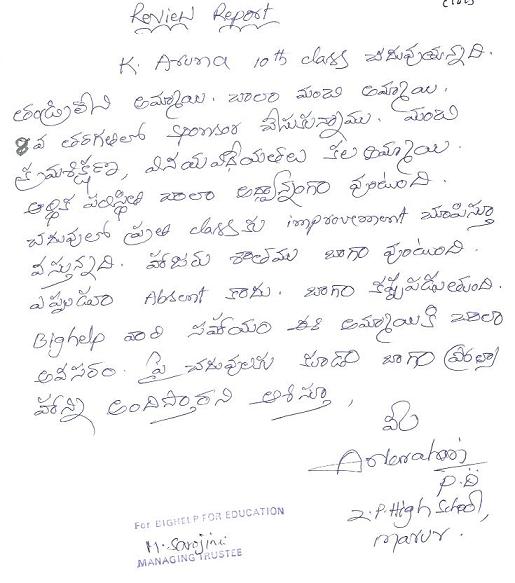 Review Report
K. Aruna 10th class చదువుతున్నది.
తండ్రిలేని అమ్మాయి. చాలా మంచి అమ్మాయి.
8వ తరగతిలో sponsor చేసుకున్నాము. మంచి
క్రమశిక్షణ, వినయవిధేయతలు కల అమ్మాయి.
ఆర్థిక పరిస్థితి చాలా అధ్వాన్నంగా వుంటుంది.
చదువులో ప్రతి class కు improvement చూపిస్తూ
వస్తున్నది. హాజరు శాతము బాగా వుంటుంది.
ఎప్పుడూ Absent కాదు. బాగా కష్టపడుతుంది.
Bighelp వారి సహాయం ఈ అమ్మాయికి చాలా
అవసరం. పై చదువులకు కూడా బాగా ప్రోత్సా
హాన్ని అందిస్తారని ఆశిస్తూ,
మీ
P.D
Z.P. High School,
Marur.
For BIGHELP FOR EDUCATION
M. Sarojini
MANAGING TRUSTEE